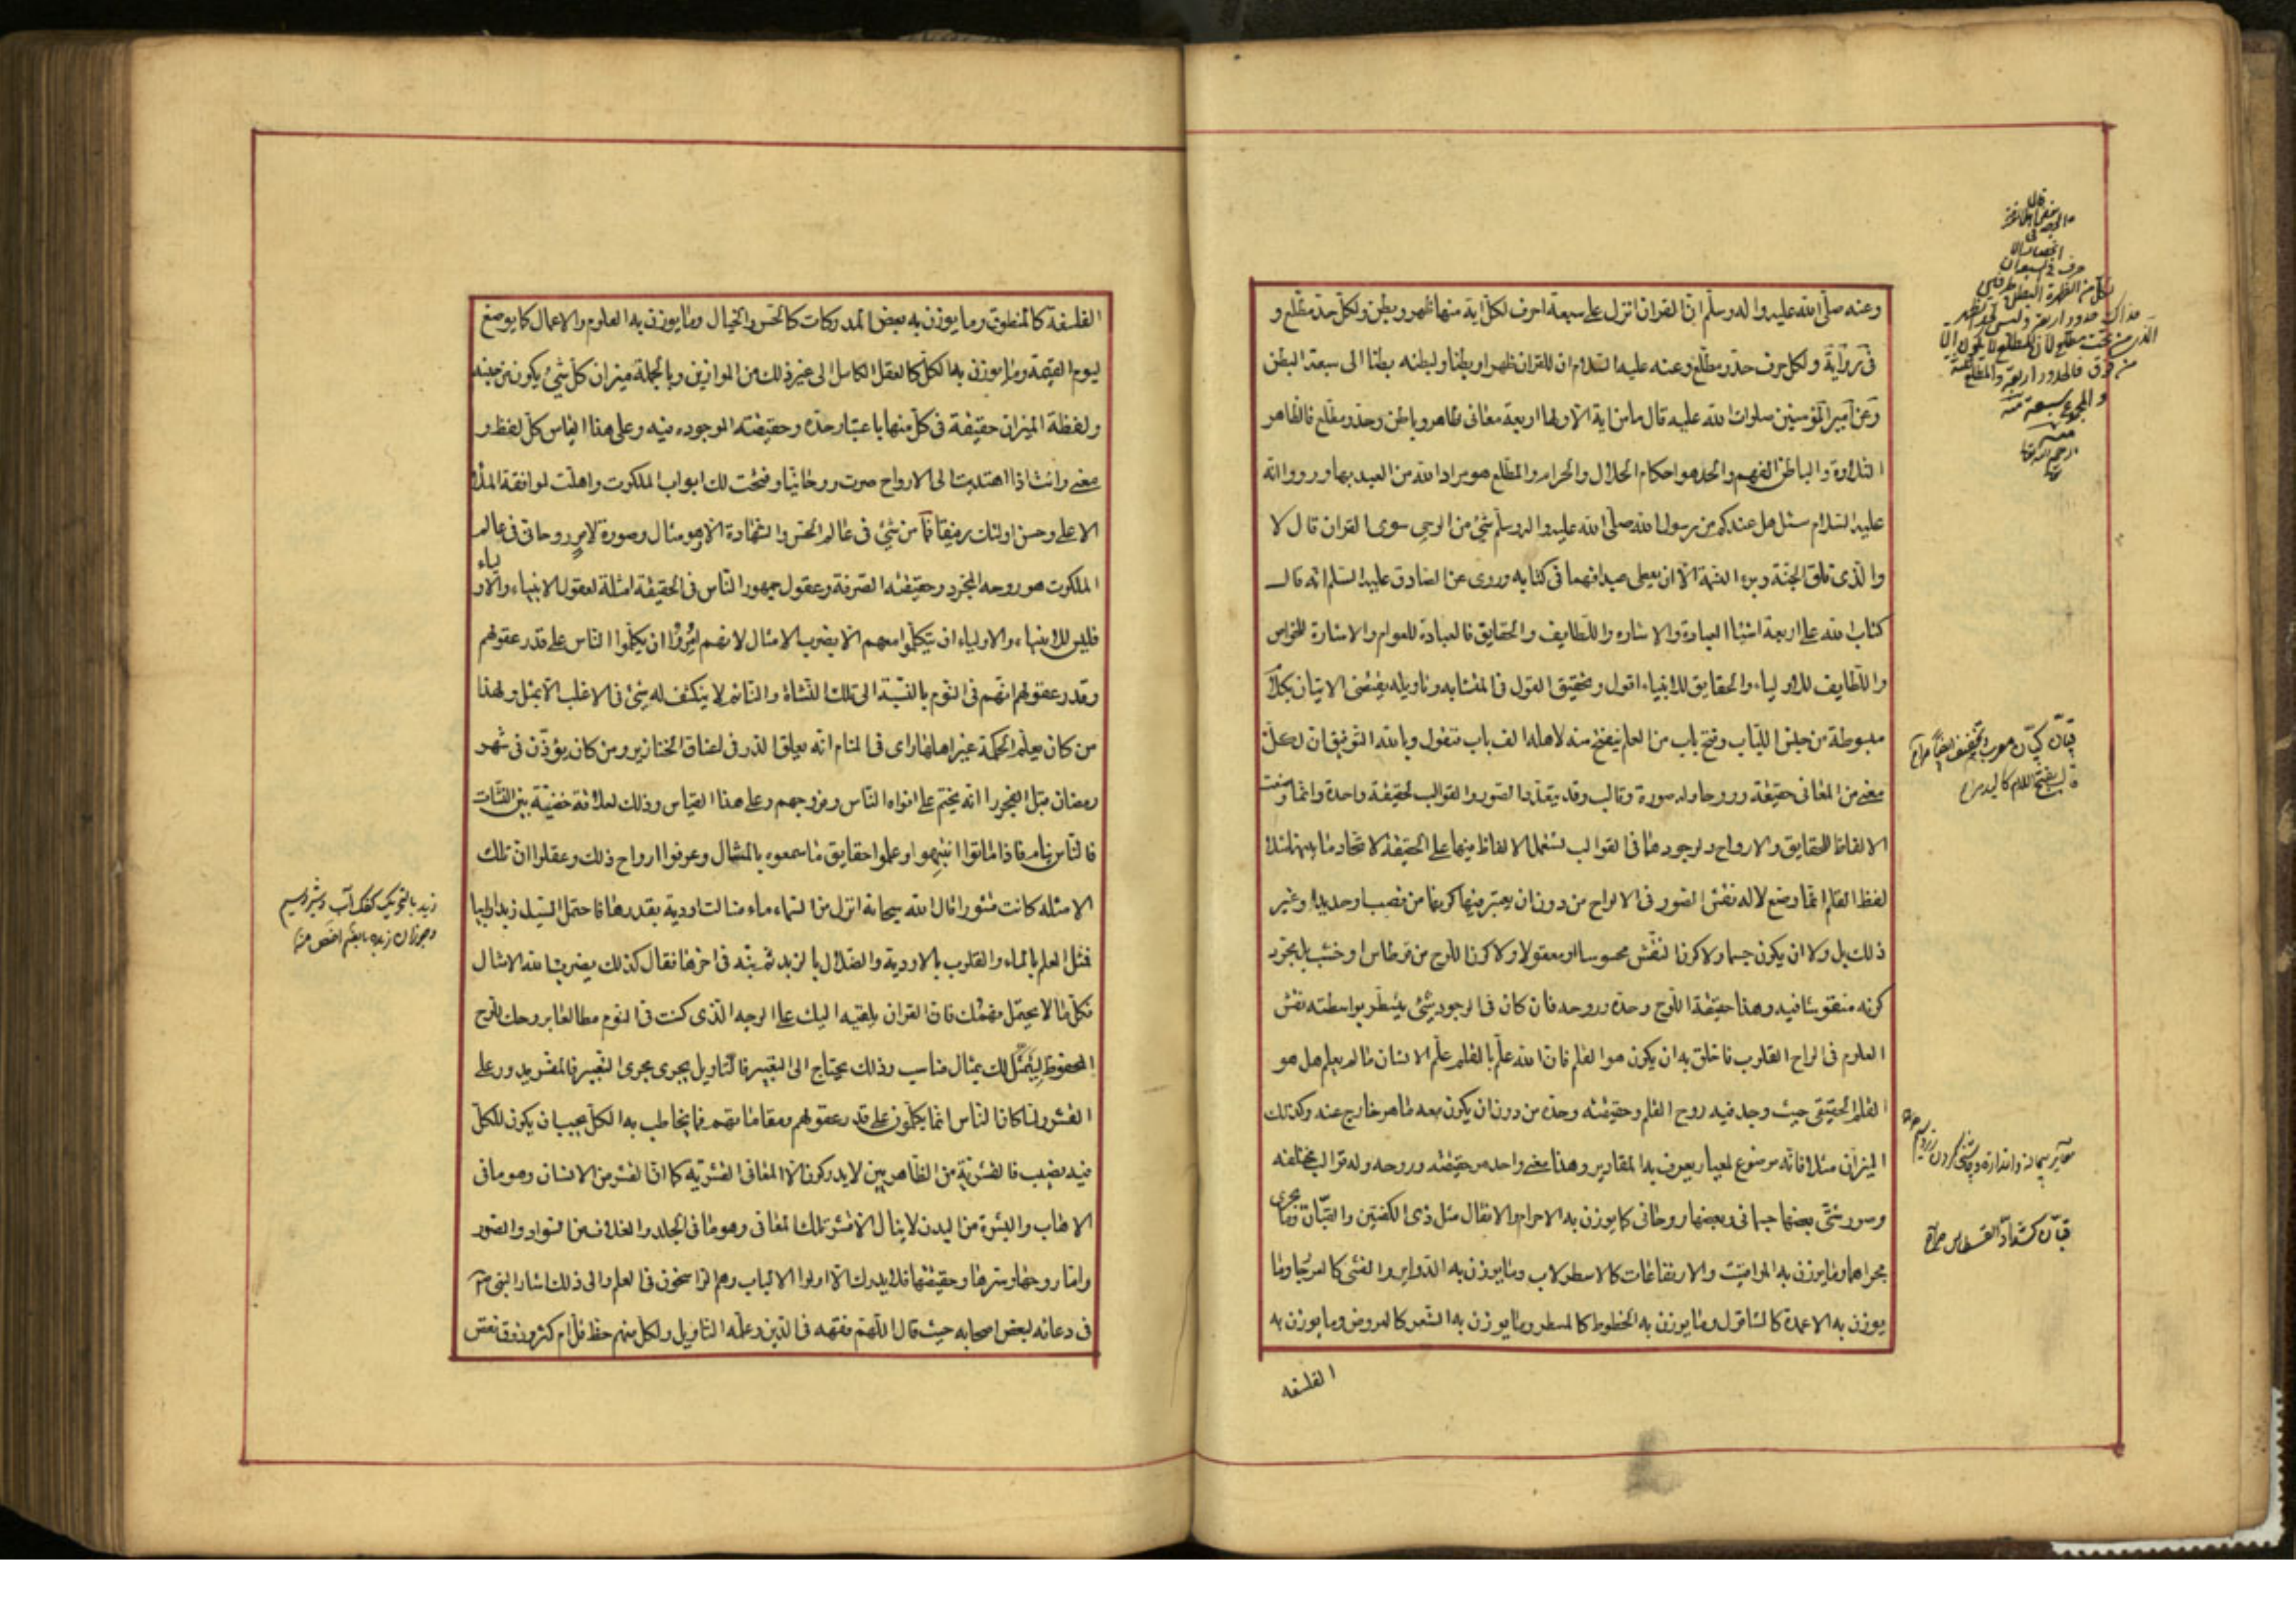 وعنه صلّى الله عليه واله وسلّم انّ القران انزل على سبعة احرف لكلّ اية منها ظهر وبطن ولكلّ حدّ مطّلع و
فى رواية ولكل حرف حدّ ومطّلع وعنه عليه السّلام ان للقران ظهرا وبطنا ولبطنه بطنا الى سبعة ابطن
وعن امير المؤمنين صلوات الله عليه قال ما من اية الّا ولها اربعة معانى ظاهر وباطن وحدّ ومطّلع فالظاهر
التلاوة والباطن الفهم والحد هو احكام الحلال والحرام والمطّلع هو مراد الله من العبد بها ورووا انّه
عليه السّلام سئل هل عندكم من رسول الله صلّى الله عليه واله وسلّم شئ من الوحى سوى القران قال لا
والّذى فلق الحبّة وبرء النسمة الّا ان يعطى عبدا فهما فى كتابه وروى عن الصّادق عليه السّلم انّه قال
كتاب الله على اربعة اشيا العبادة والاشاره واللّطايف والحقايق فالعبادة للعوام والاشارة للخواص
واللّطايف للاولياء والحقايق للانبياء اقول وتحقيق القول فى المتشابه وتاويله يقتضى الاتيان بكلام
مبسوطة من جنس اللّباب وفتح باب من العلم ينفتح منه لاهله الف باب فنقول وبالله التّوفيق ان لكلّ
معنى من المعانى حقيقة وروحا وله صورة وقالب وقد يتعدّد الصّور والقوالب لحقيقة واحدة وانّما وضعت
الالفاظ للحقايق والارواح ولوجودهما فى القوالب تستعمل الالفاظ فيها على الحقيقة لاتّحاد ما بينهما مثلا
لفظ القلم انّما وضع لالة نقش الصّور فى الالواح من دون ان يعتبر فيها كونها من قصب او حديد او غير
ذلك بل ولا ان يكون جسما ولا كون النقش محسوسا او معقولا ولا كون اللّوح من قرطاس او خشب بل مجرّد
كونه منقوشا فيه وهذا حقيقة اللّوح وحدّه وروحه فان كان فى الوجود شئ يتسطّر بواسطته نقش
العلوم فى الواح القلوب فاخلق به ان يكون هو القلم فان الله علّم بالقلم علّم الانسان ما لم يعلم بل هو
القلم الحقيقى حيث وجد فيه روح القلم وحقيقته وحدّه من دون ان يكون معه ما هو خارج عنه وكذلك
الميزان مثلا فانّه موضوع لمعيار يعرف به المقادير وهذا معنى واحد هو حقيقته وروحه وله قوالب مختلفه
وصور شتّى بعضها جسمانى وبعضها روحانى كما يوزن به الاجرام والاثقال مثل ذى الكفتين والقبّان وما يجرى
مجراهما وما يوزن به المواقيت والارتفاعات كالاسطرلاب وما يوزن به الدّواير والقسى كالفرجار وما
يوزن به الاعمدة كالشاقول وما يوزن به الخطوط كالمسطر وما يوزن به الشعر كالعروض وما يوزن به
الفلسفه
قبّان كشدّاد القسطاس
الفلسفة كالمنطق وما يوزن به بعض المدركات كالحس والخيال وما يوزن به العلوم والاعمال كما يوضع
ليوم القيمة وما يوزن بها الكل كالعقل الكامل الى غير ذلك من الموازين وبالجملة ميزان كل شئ يكون من جنسه
ولفظة الميزان حقيقة فى كلّ منها باعتبار حدّه وحقيقته الموجوده فيه وعلى هذا القياس كلّ لفظ و
معنى وانت اذا اهتديت الى الارواح صرت روحانيّا وفتحت لك ابواب الملكوت واهلت لموافقة الملأ
الاعلى وحسن اولئك رفيقا فما من شئ فى عالم الحسّ والشّهادة الّا وهو مثال وصورة لامر روحانى فى عالم
الملكوت هو روحه المجرّد وحقيقته الصّرفة وعقول جمهور النّاس فى الحقيقة امثلة لعقول الانبياء والاولياء
فليس للانبياء والاولياء ان يتكلّموا معهم الّا بضرب الامثال لانهم امروا ان يكلّموا النّاس على قدر عقولهم
وقدر عقولهم انّهم فى النوم بالنّسبة الى تلك النّشأة والنّائم لا ينكشف له شئ فى الاغلب الّا بمثل ولهذا
من كان يعلّم الحكمة غير اهلها راى فى المنام انّه يعلق الدّر فى اعناق الخنازير ومن كان يؤذّن فى شهر
رمضان قبل الفجر راى انّه يختم على افواه النّاس وفروجهم وعلى هذا القياس وذلك لعلاقة خفيّة بين النّشآت
فالنّاس نيام فاذا ماتوا انتبهوا وعلموا حقايق ما سمعوه بالمثال وعرفوا ارواح ذلك وعقلوا انّ تلك
الامثله كانت قشورا قال الله سبحانه انزل من السّماء ماء فسالت اودية بقدرها فاحتمل السّيل زبدا رابيا
فمثل العلم بالماء والقلوب بالاودية والضّلال بالزبد ثمّ نبّه فى اخرها فقال كذلك يضرب الله الامثال
فكلّ ما لا يحتمل فهمك فانّ القران يلقيه اليك على الوجه الّذى كنت فى النوم مطالعا بروحك للّوح
المحفوظ ليتمثّل لك بمثال مناسب وذلك يحتاج الى التّعبير فالتّاويل يجرى مجرى التّعبير فالمفسّر يدور على
القشر ولمّا كان النّاس انّما يكلّمون على قدر عقولهم ومقاماتهم فما يخاطب به الكلّ يجب ان يكون للكلّ
فيه نصيب فالقشريّة من الظّاهريين لا يدركون الّا المعانى القشريّة كما انّ القشر من الانسان وهو ما فى
الاهاب والبشرة من البدن لا ينال الّا قشر تلك المعانى وهو ما فى الجلد والغلاف من السّواد والصّور
وامّا روحها وسرّها وحقيقتها فلا يدرك الّا اولوا الالباب وهم الرّاسخون فى العلم والى ذلك اشار النّبى
فى دعائه لبعض اصحابه حيث قال اللّهمّ فقّهه فى الدّين وعلّمه التّاويل ولكل منهم حظ قلّ ام كثر وذوق نقص